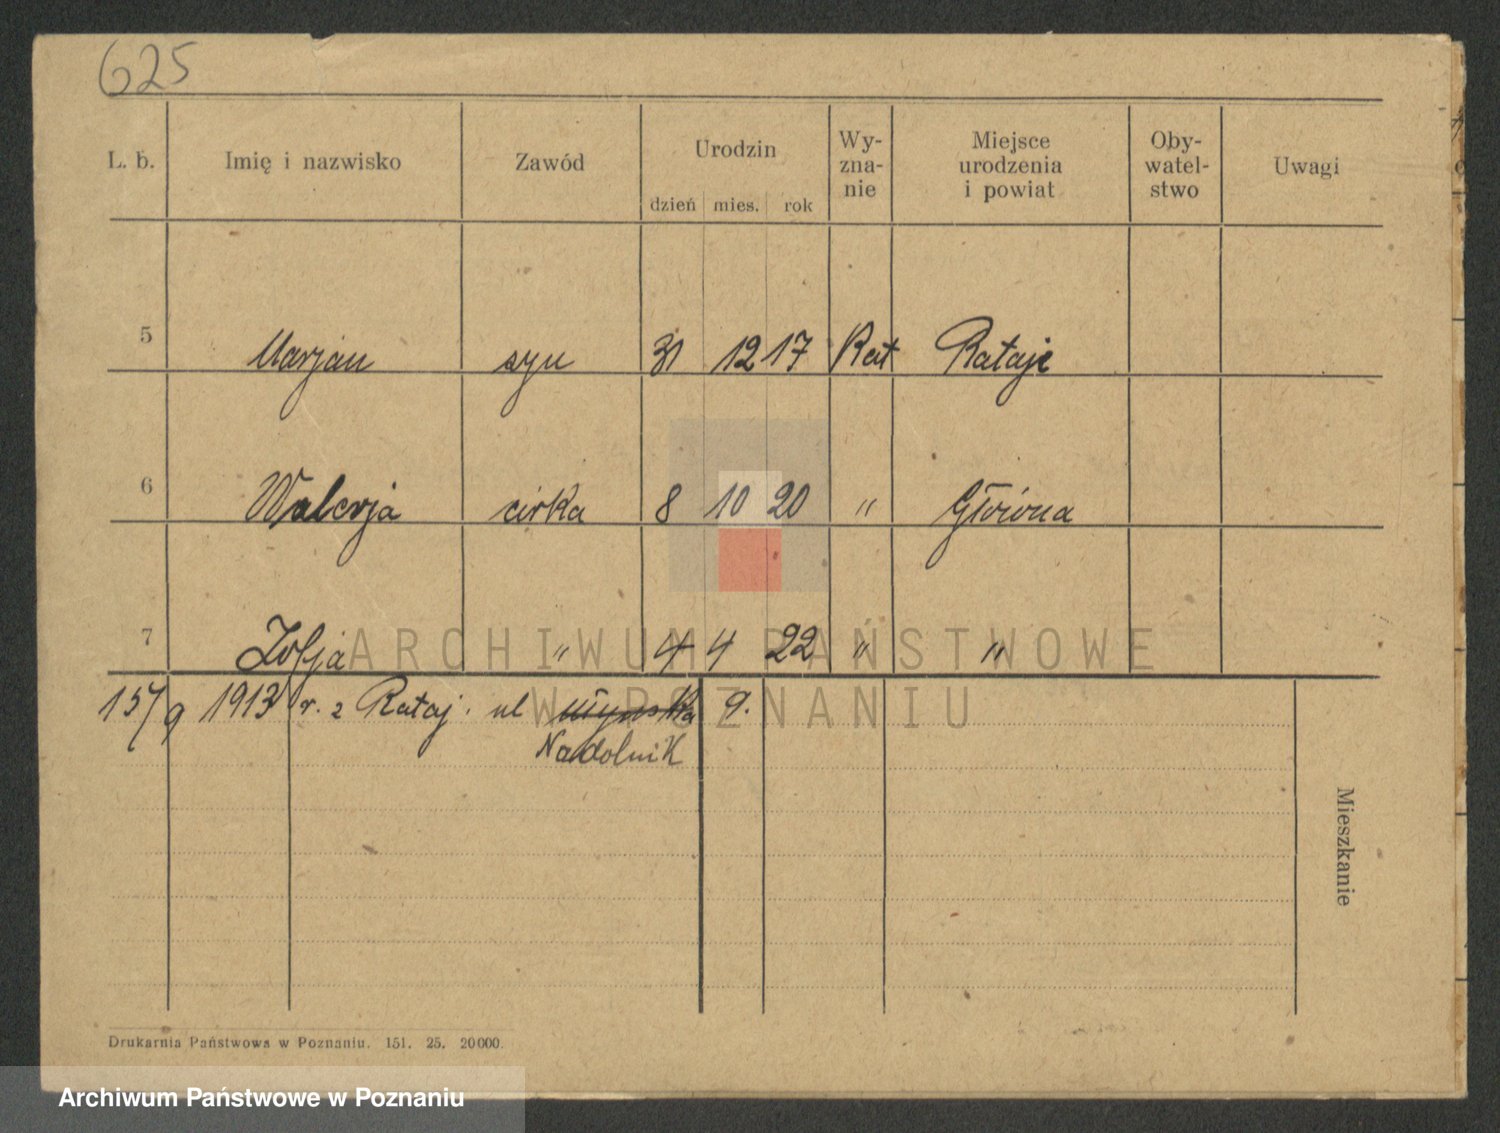 625
L. b. Imię i nazwisko Zawód Urodzin Wy- Miejsce Oby- Uwagi
zna- urodzenia watel-
dzień mies. rok nie i powiat stwo
5 Marjan syn 31 12 17 Kat Rataje
6 Walerja córka 8 10 20 " Główna
7 Zofja " 4 4 22 " "
15/9 1913 r. z Rataj. ul Młyńska 9.
Nadolnik
Mieszkanie
ARCHIWUM PAŃSTWOWE
W POZNANIU
Drukarnia Państwowa w Poznaniu. 151. 25. 20000.
Archiwum Państwowe w Poznaniu